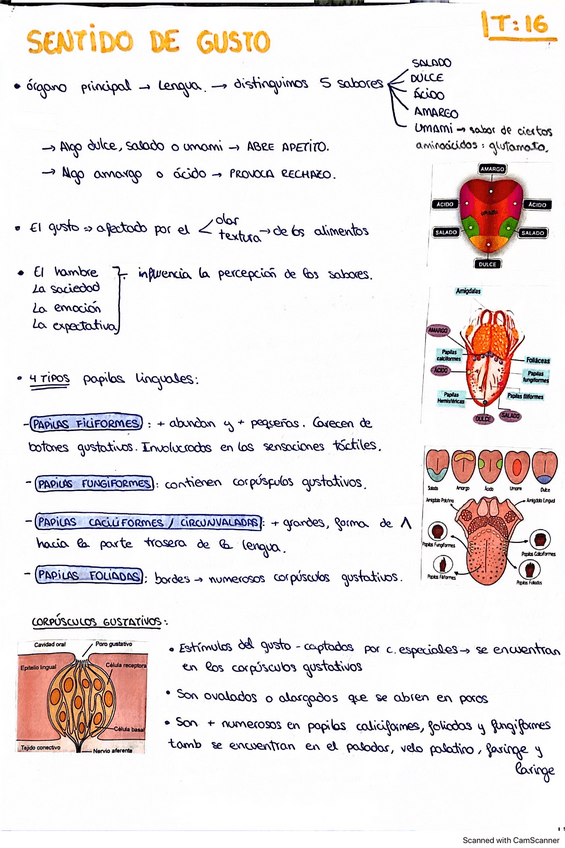 T:16
SENTIDO DE GUSTO
• órgano principal → Lengua. → distinguimos 5 sabores
SALADO
DULCE
ÁCIDO
AMARGO
UMAMI → sabor de ciertos
aminoácidos: glutamato.
→ Algo dulce, salado o umami → ABRE APETITO.
→ Algo amargo o ácido → PROVOCA RECHAZO.
AMARGO
ÁCIDO
ÁCIDO
UMAMI
SALADO
SALADO
DULCE
• El gusto → afectado por el
olor
textura → de los alimentos
• El hambre
La sociedad
La emoción
La expectativa
influencia la percepción de los sabores.
Amígdalas
AMARGO
Papilas
caliciformes
Foliáceas
ÁCIDO
Papilas
fungiformes
Papilas
Hemisféricas
Papilas filiformes
DULCE
SALADO
• 4 TIPOS papilas linguales:
- PAPILAS FILIFORMES: + abundan y + pequeñas. Carecen de
botones gustativos. Involucradas en las sensaciones táctiles.
- PAPILAS FUNGIFORMES: contienen corpúsculos gustativos.
- PAPILAS CACILIFORMES / CIRCUNVALADAS: + grandes, forma de Λ
hacia la parte trasera de la lengua.
- PAPILAS FOLIADAS: bordes → numerosos corpúsculos gustativos.
Salado
Amargo
Ácido
Umami
Dulce
Amígdala Palatina
Amígdala Lingual
Papilas Fungiformes
Papilas Caliciformes
Papilas Filiformes
Papilas Foliadas
CORPÚSCULOS GUSTATIVOS:
Cavidad oral
Poro gustativo
Epitelio lingual
Célula receptora
Célula basal
Tejido conectivo
Nervio aferente
• Estímulos del gusto - captados por c. especiales → se encuentran
en los corpúsculos gustativos
• Son ovalados o alargados que se abren en poros
• Son + numerosos en papilas caliciformes, foliadas y fungiformes
tamb se encuentran en el paladar, velo palatino, faringe y
laringe
Scanned with CamScanner